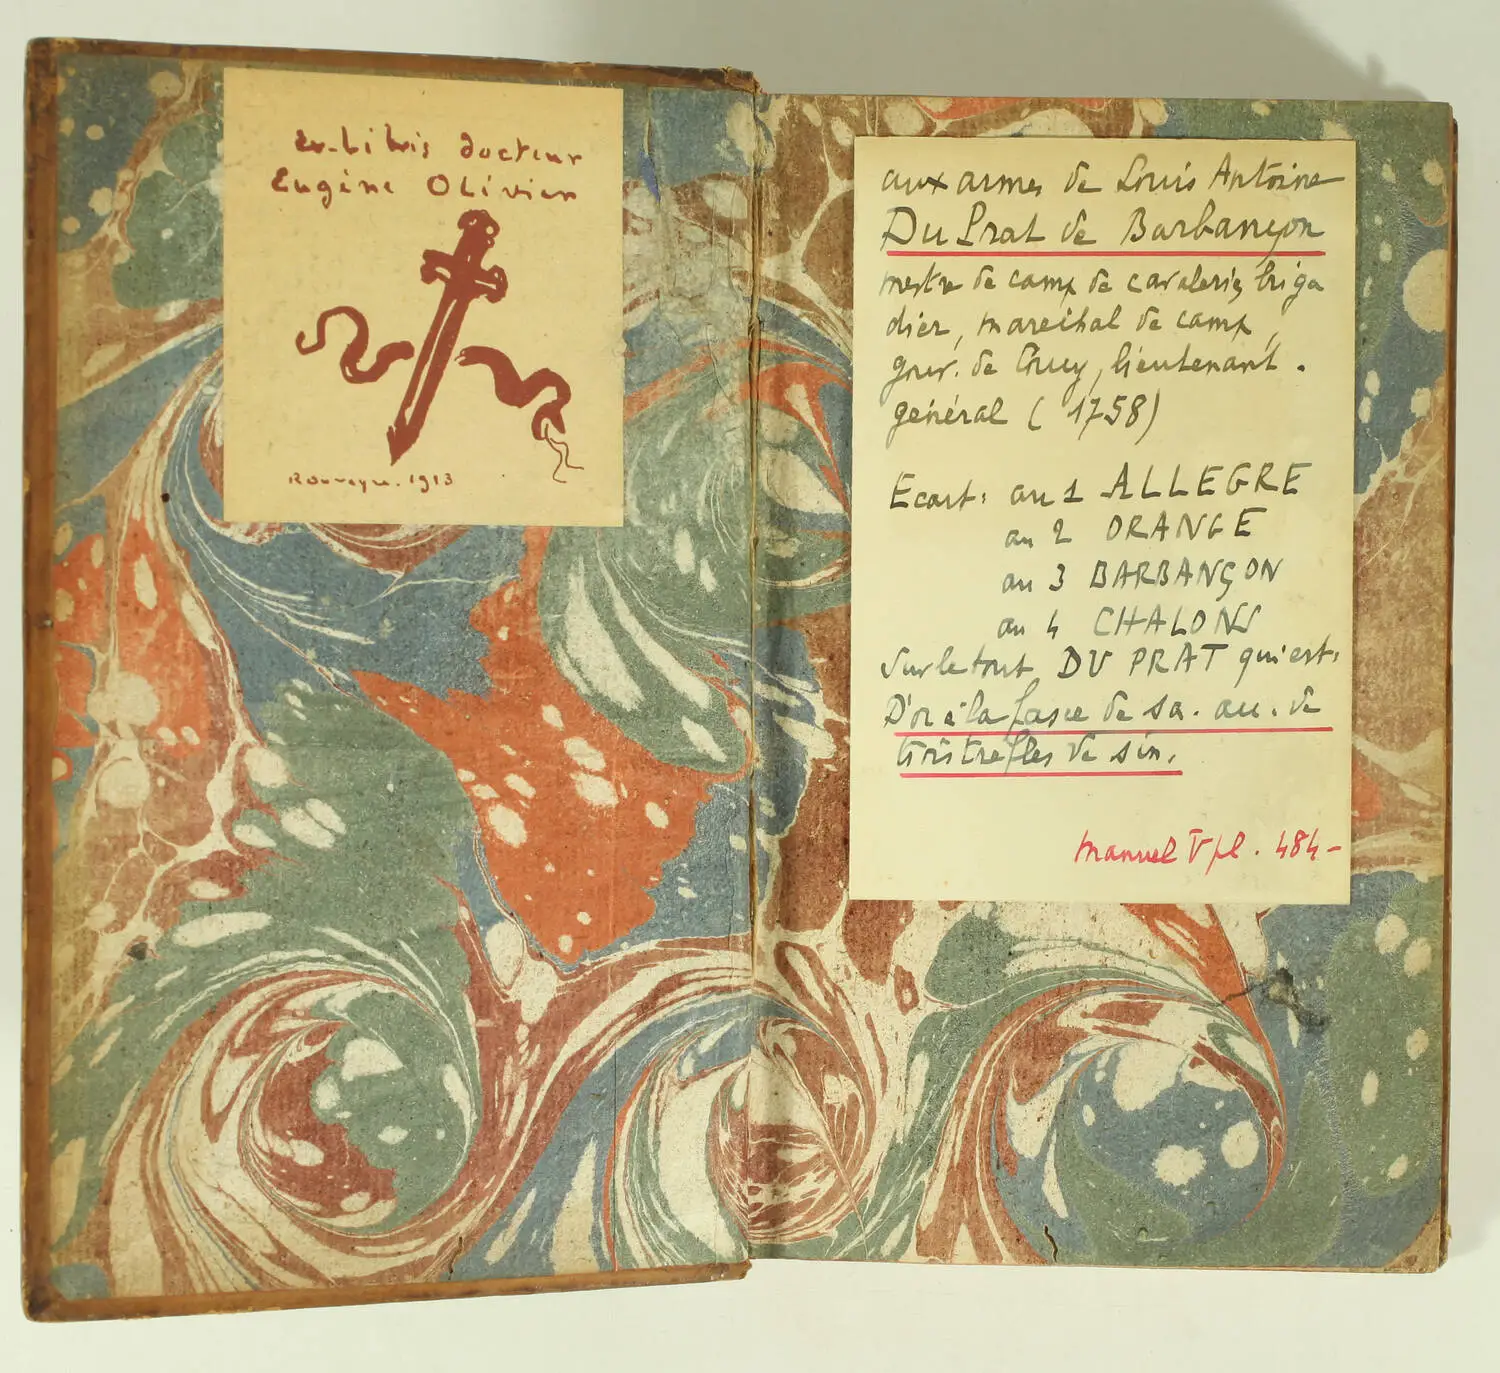 Ex-Libris docteur
Eugène Olivier
Rouveyre. 1913
aux armes de Louis Antoine
Du Prat de Barbançon
mestre de camp de cavalerie, briga
dier, maréchal de camp,
gouv. de Coucy, lieutenant.
général (1758)
Ecart: au 1 ALLEGRE
au 2 ORANGE
au 3 BARBANÇON
au 4 CHALONS
Sur le tout DU PRAT qui est:
D'or à la fasce de sa. ac. de
trois trefles de sin.
Manuel V pl. 484-